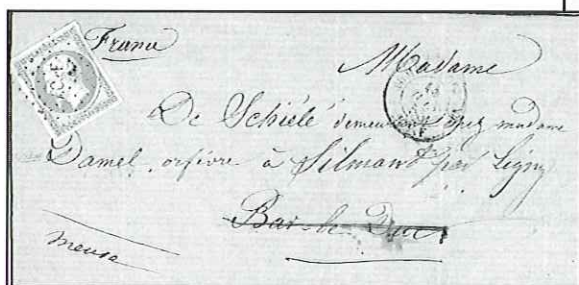 France
Madame
De Schiélé demeurant chez madame
Damel, orfivre à Silmont par Ligny
Bar-le-Duc
meuse